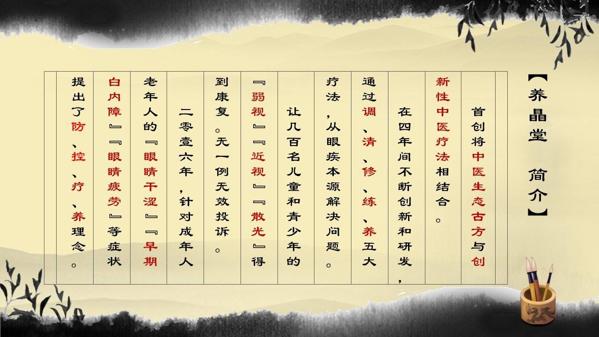 【养晶堂 简介】
首创将中医生态古方与创
新性中医疗法相结合。
在四年间不断创新和研发，
通过调、清、修、练、养五大
疗法，从眼疾本源解决问题。
让几百名儿童和青少年的
『弱视』『近视』『散光』得
到康复。无一例无效投诉。
二零壹六年，针对成年人
老年人的『眼睛干涩』『早期
白内障』『眼睛疲劳』等症状
提出了防、控、疗、养理念。